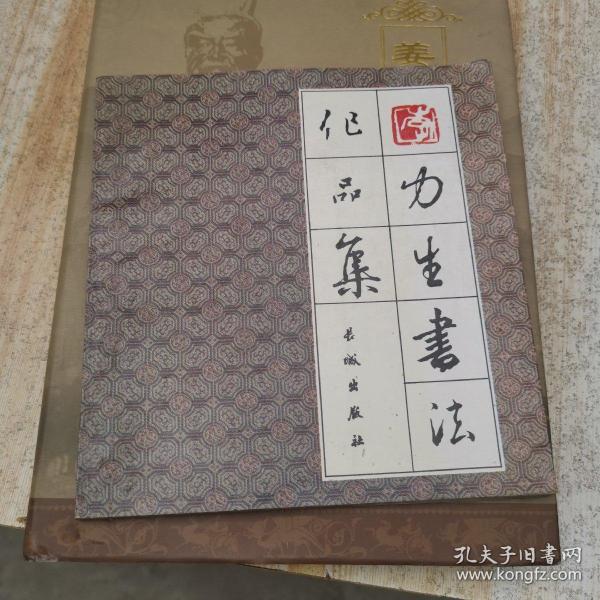 李力生書法
作品集
长城出版社
姜
孔夫子旧書网
www.kongfz.com